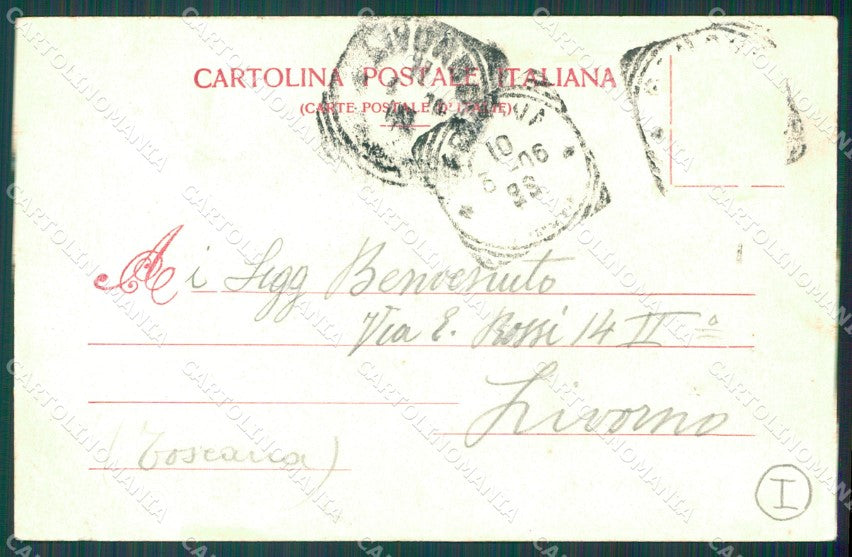 CARTOLINA POSTALE ITALIANA
(CARTE POSTALE D'ITALIE)
LIVORNO
Ai Sigg Benvenuto
Via E. Rossi 14 IIº
Livorno
(Toscana)
I
CARTOLINOMANIA